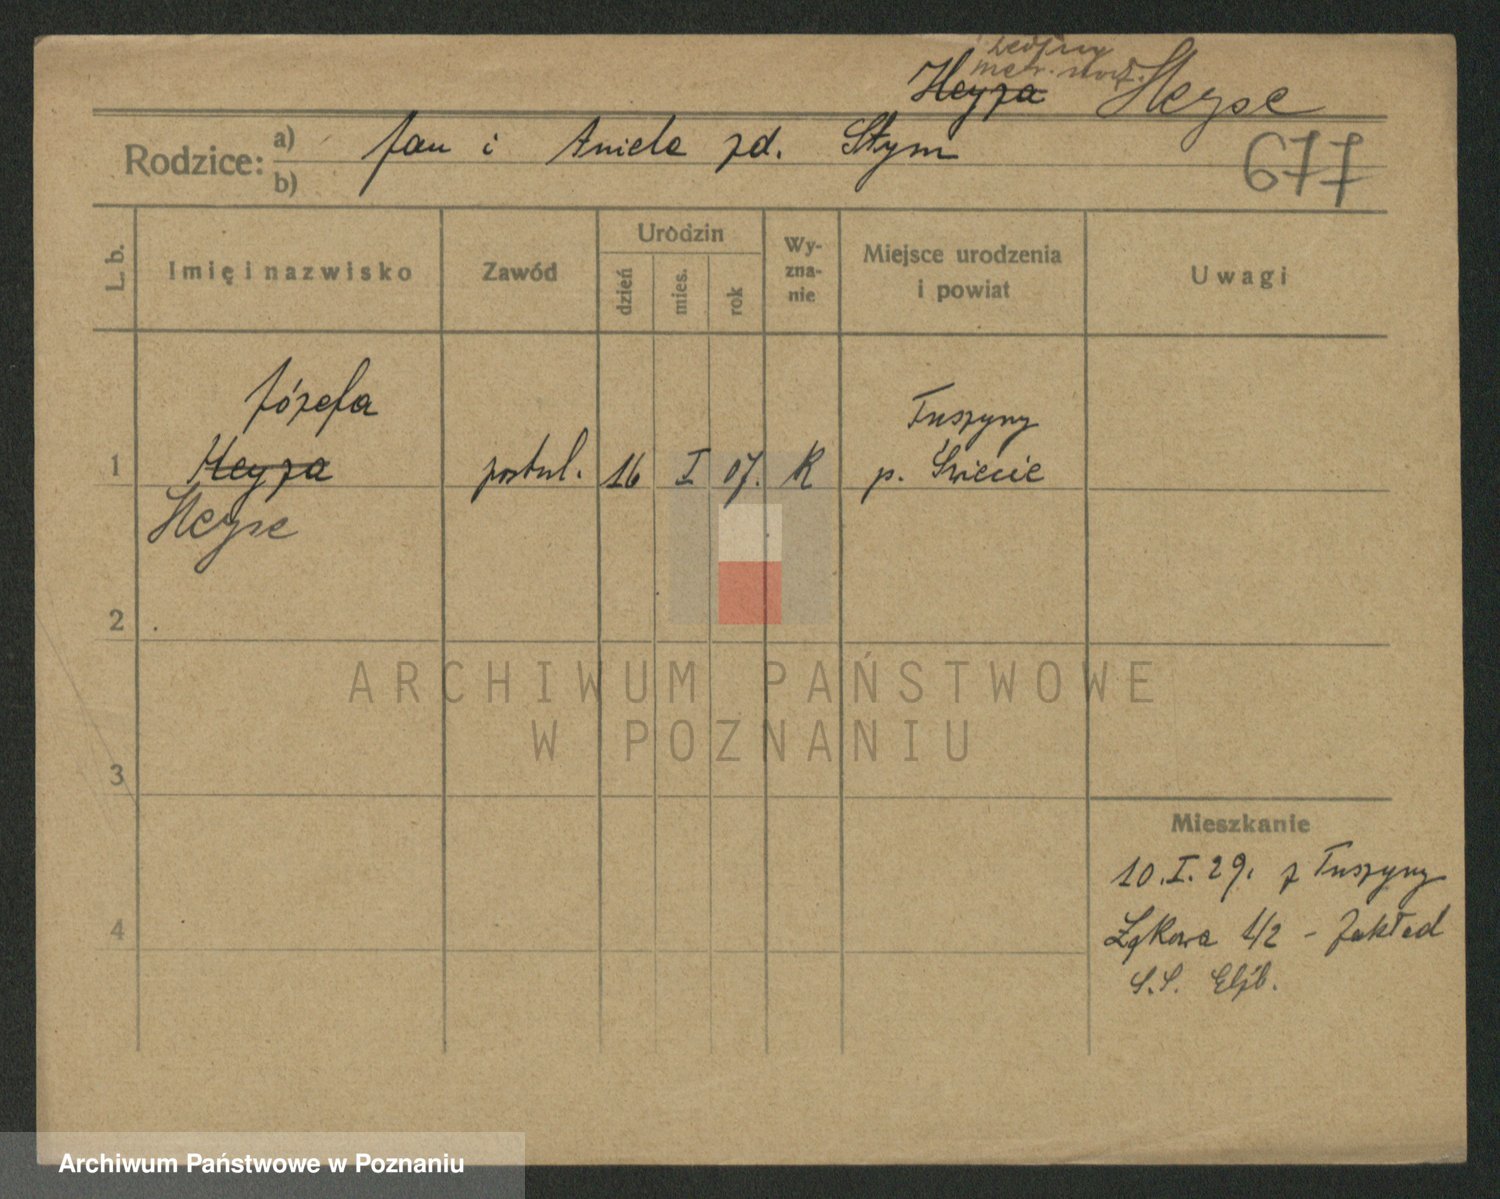 według
metr. urodz.
Heyza Heyse
Rodzice: a) Jan i Aniela zd. Stym
b)
677
L. b.
Imię i nazwisko
Zawód
Urodzin
dzień
mies.
rok
Wy-
zna-
nie
Miejsce urodzenia
i powiat
Uwagi
Józefa
1 Heyza postul. 16 I 07. R Tuszyny
p. Świecie
Heyse
2
3
4
Mieszkanie
10.I.29. z Tuszyny
Łąkowa 1/2 - Zakład
S.S. Elżb.
ARCHIWUM PAŃSTWOWE
W POZNANIU
Archiwum Państwowe w Poznaniu